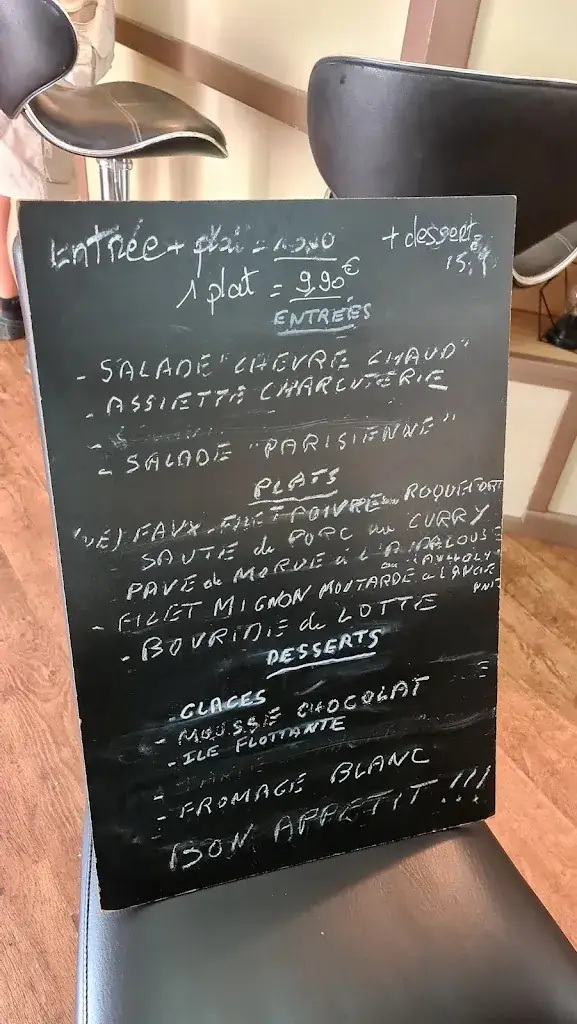 Entrée + plat =
+ dessert
1 plat = 9,90€
ENTREÉS
- SALADE "CHEVRE CHAUD"
- ASSIETTE CHARCUTERIE
-
- SALADE "PARISIENNE"
PLATS
FAUX-FILET POIVRE ou ROQUEFORT
SAUTE de PORC au CURRY
PAVE de MORUE à l'
- FILET MIGNON MOUTARDE à l'ANCIENNE
- BOURIDIE de LOTTE
DESSERTS
- GLACES
- MOUSSE CHOCOLAT
- ILE FLOTTANTE
-
- FROMAGE BLANC
BON APPETIT!!!